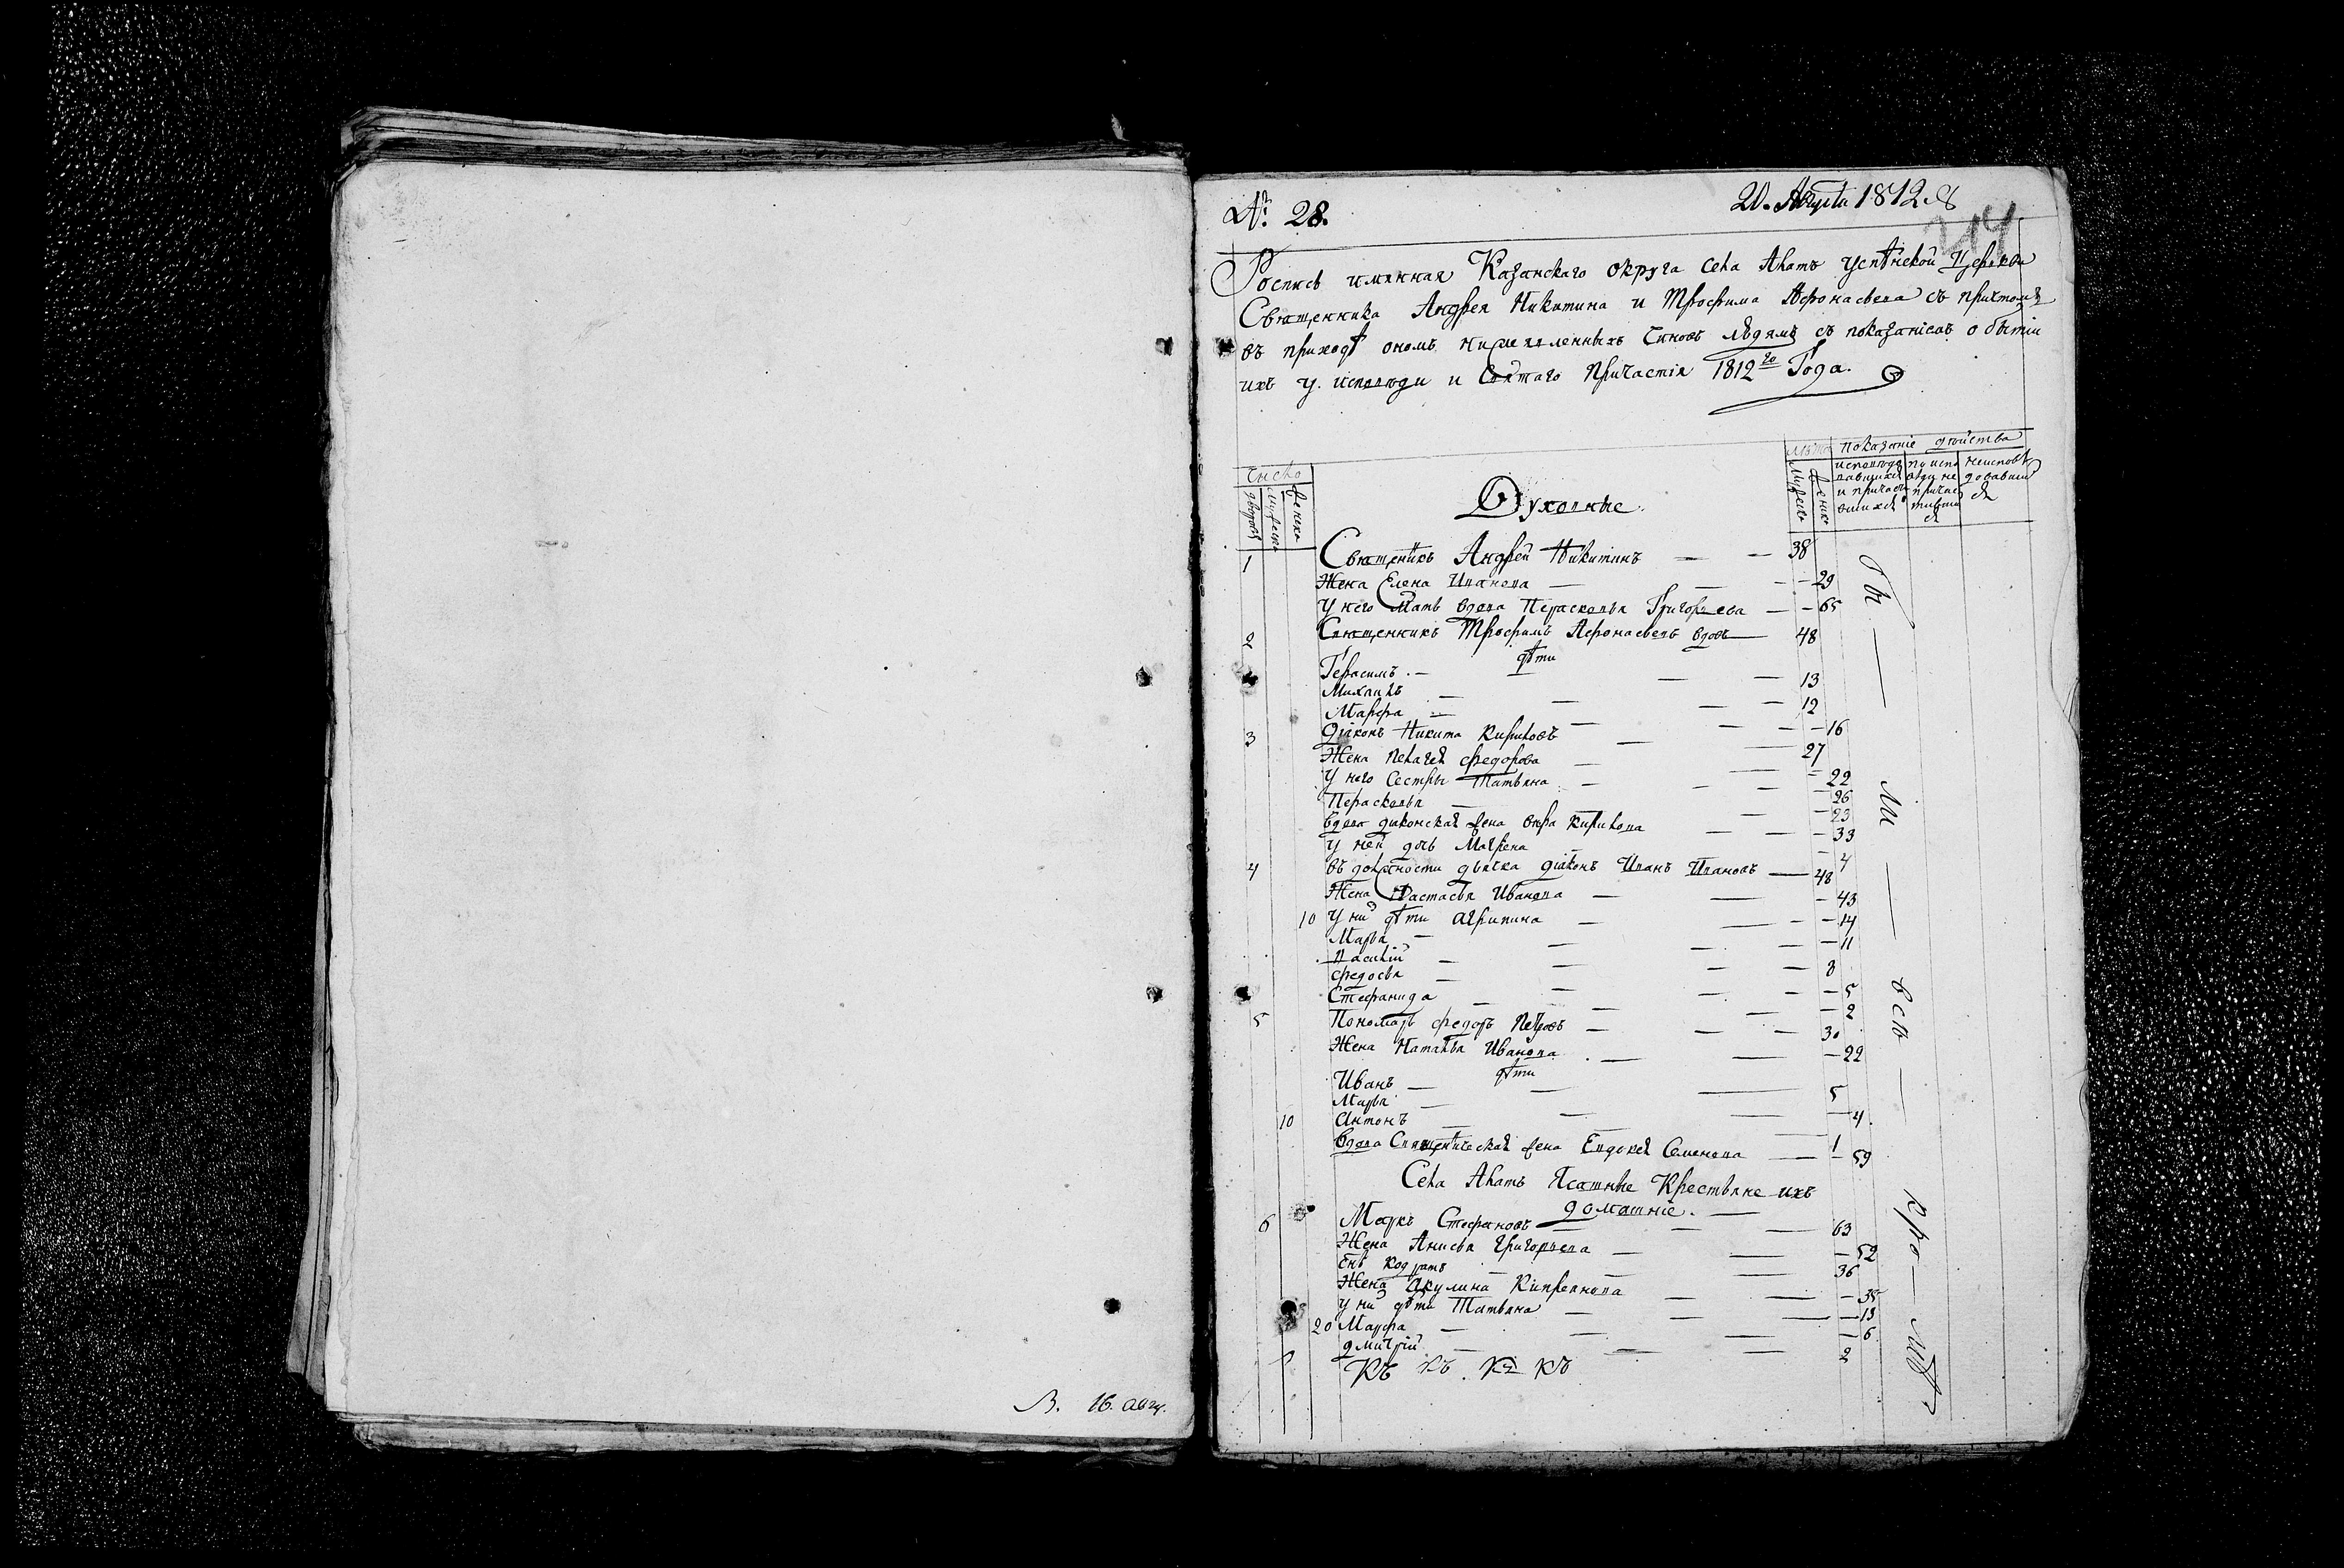 В. 16. авгу.
№ 28.
20. Августа 1812.
214
Роспись именная Казанскаго округа села Алатъ успѣнской Церькви
Священника Андрея Никитина и Трофима Афонасьева съ причтомъ
въ приходѣ ономъ нижеявленныхъ Чиновъ людямъ съ показаніемъ о бытіи
ихъ у исповѣди и Святаго Причастія 1812го Года.
Число
дворовъ
мужеска
женска
Духовные.
лѣта
мужеска
женска
показаніе действа
исповѣдавшихся и причастившихся
по исповѣди не причастившися
неисповѣдовавшися
1 Священникъ Андрей Никитинъ — — 38
Жена Елена Иванова — — 29
У него Мать вдова Перасковья Григорьева — — 65
2 Священникъ Трофимъ Афонасьевъ вдовъ — 48
дѣти
Герасимъ — — 13
Михаилъ — — 12
Марфа — — 16
3 Діяконъ Никита Кириловъ — — 27
Жена Пелагея Федорова — — 22
У него Сестры Татьяна — — 26
Перасковья — — 23
Вдова дьяконская жена Вѣра Кирилова — — 33
у ней дочь Матрена — — 4
4 Въ должности дьячка діяконъ Иванъ Ивановъ — 48
Жена Настасья Иванова — — 43
10 У них дѣти Агрипина — — 14
Марья — — 11
Василий — — 8
Федосья — — 5
Стефанида — — 2
5 Пономарь Федоръ Петровъ — — 30
Жена Наталья Иванова — — 22
дѣти
Иванъ — — 5
Марья — — 4
10 Антонъ — — 1
Вдова Священническая жена Евдокея Семенова — — 59
Села Алатъ Ясашные Крестьяне ихъ
домашніе.
6 Маркъ Стефановъ — — 63
Жена Анисья Григорьева — — 52
Снъ Кодратъ — — 36
Жена Акулина Кипреянова — — 35
У них дѣти Татьяна — — 13
20 Марфа — — 6
Дмитрій — — 2
КЪ КЪ КЪ КЪ
Бы — ли — всѣ —